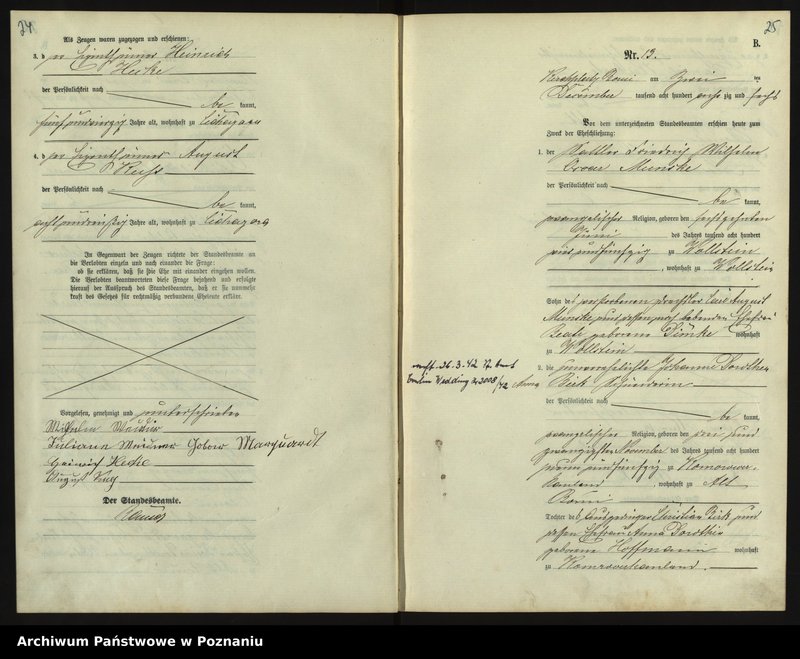 24.
Als Zeugen waren zugezogen und erschienen:
3. der Eigenthümer Heinrich
Heske
der Persönlichkeit nach
be kannt,
fünfundvierzig Jahre alt, wohnhaft zu
4. der Eigenthümer August
der Persönlichkeit nach
be kannt,
achtunddreißig Jahre alt, wohnhaft zu
In Gegenwart der Zeugen richtete der Standesbeamte an
die Verlobten einzeln und nach einander die Frage:
ob sie erklären, daß sie die Ehe mit einander eingehen wollen.
Die Verlobten beantworteten diese Frage bejahend und erfolgte
hierauf der Ausspruch des Standesbeamten, daß er sie nunmehr
kraft des Gesetzes für rechtmäßig verbundene Eheleute erkläre.
Vorgelesen, genehmigt und unterschrieben
Wilhelm
Juliane Geborn Marquardt
Heinrich Heske
August
Der Standesbeamte.
25
B.
Nr. 13.
Kirchplatz Borui am zwei ten
Dezember tausend acht hundert achtzig und sechs
Vor dem unterzeichneten Standesbeamten erschien heute zum
Zweck der Eheschließung:
1. der Sattler Friedrich Wilhelm
Oscar Munske
der Persönlichkeit nach
be kannt,
evangelischer Religion, geboren den sechszehnten
Juni des Jahres tausend acht hundert
undfünfzig zu Wollstein
, wohnhaft zu Wollstein
Sohn des verstorbenen Carl August
Munske und dessen noch lebenden Ehefrau
Beate geborene wohnhaft
zu Wollstein
2. die unverehelichte Johanne Dorothea
Anna
Birk Schneiderin
der Persönlichkeit nach
be kannt,
evangelischer Religion, geboren den drei und
zwanzigsten November des Jahres tausend acht hundert
neun und fünfzig zu Komorower
Hauland, wohnhaft zu Alt
Borui
Tochter des Ausgedinger Christian Birk und
dessen Ehefrau Anna Dorothea
geborene Hoffmann wohnhaft
zu Komorowerhauland.
verst. 26.3.42
Berlin Wedding 2008/42
Archiwum Państwowe w Poznaniu